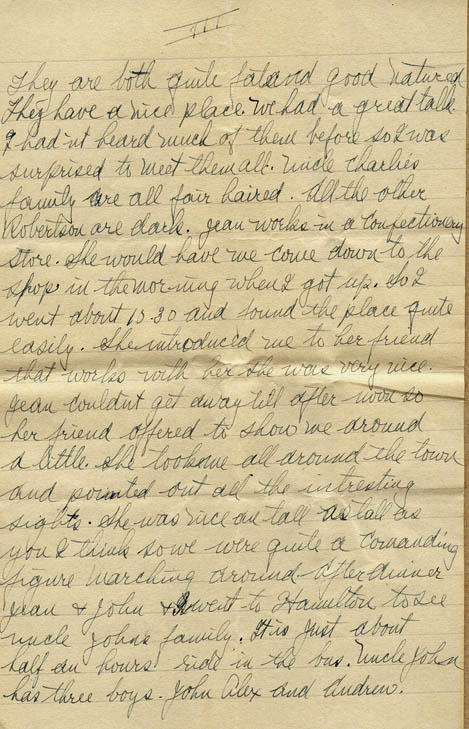 III
They are both quite fat and good natured
They have a nice place. we had a great talk
I had'nt heard much of them before so I was
surprised to meet them all. Uncle Charlies
family are all fair haired. All the other
Robertson are dark. Jean works in a confectionery
store. She would have me come down to the
shop in the morning when I got up. So I
went about 10.30 and found the place quite
easily. She introduced me to her friend
that works with her she was very nice.
Jean couldnt get away till after noon so
her friend offered to show me around
a little. She took me all around the town
and pointed out all the intresting
sights. She was nice an tall as tall as
you I think so we were quite a comanding
figure marching around. After dinner
Jean & John & I went to Hamilton to see
uncle Johns family. It is just about
half an hours ride in the bus. Uncle John
has three boys. John Alex and Andrew.